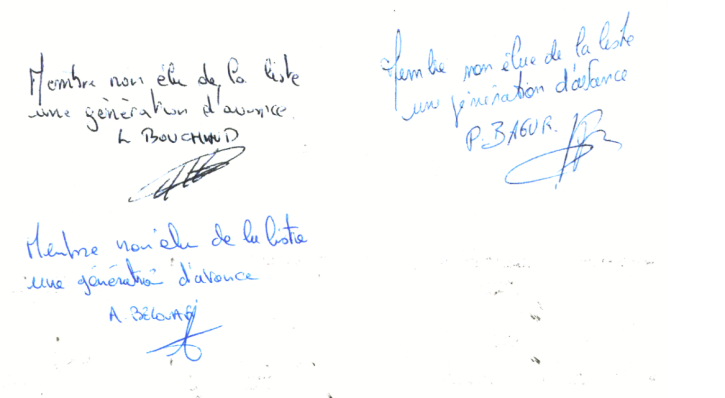 Membre non élu de la liste
une génération d'avance.
L BOUCHAUD
Membre non élue de la liste
une génération d'avance
P. BAGUR.
Membre non élu de la liste
une génération d'avance
A.